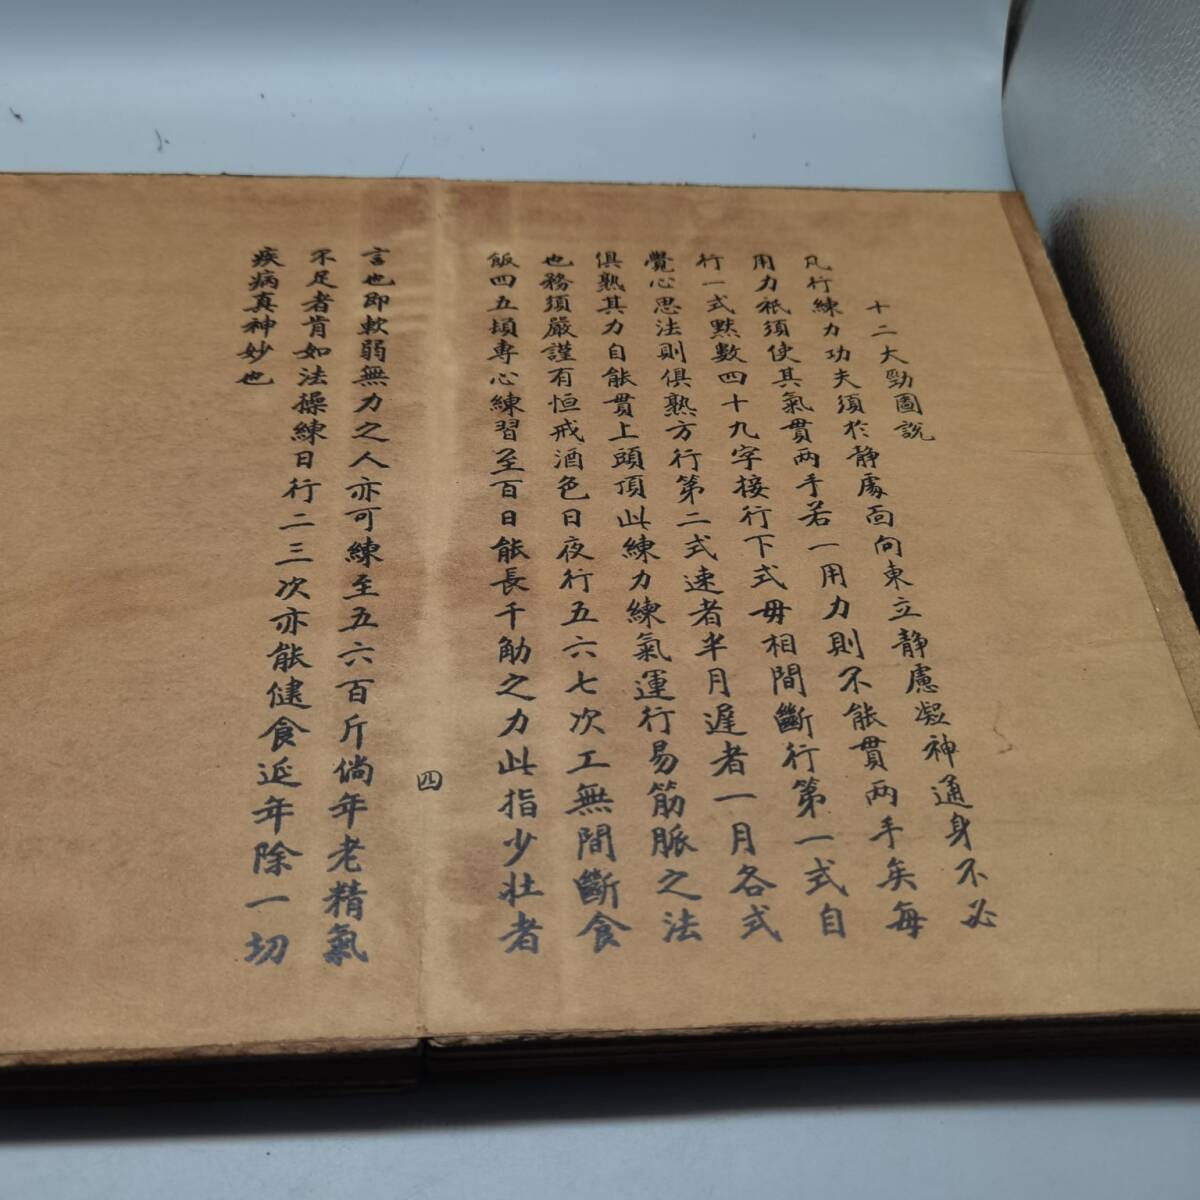 十二大勁圖說
凡行練力功夫須於靜處面向東立靜慮凝神通身不必
用力祇須使其氣貫两手若一用力則不能貫两手矣每
行一式默數四十九字接行下式毋相間斷行第一式自
覺心思法則俱熟方行第二式速者半月遲者一月各式
俱熟其力自能貫上頭頂此練力練氣運行易筋脈之法
也務須嚴謹有恒戒酒色日夜行五六七次工無間斷食
飯四五頓專心練習至百日能長千觔之力此指少壯者
四
言也即軟弱無力之人亦可練至五六百斤倘年老精氣
不足者肯如法操練日行二三次亦能健食延年除一切
疾病真神妙也